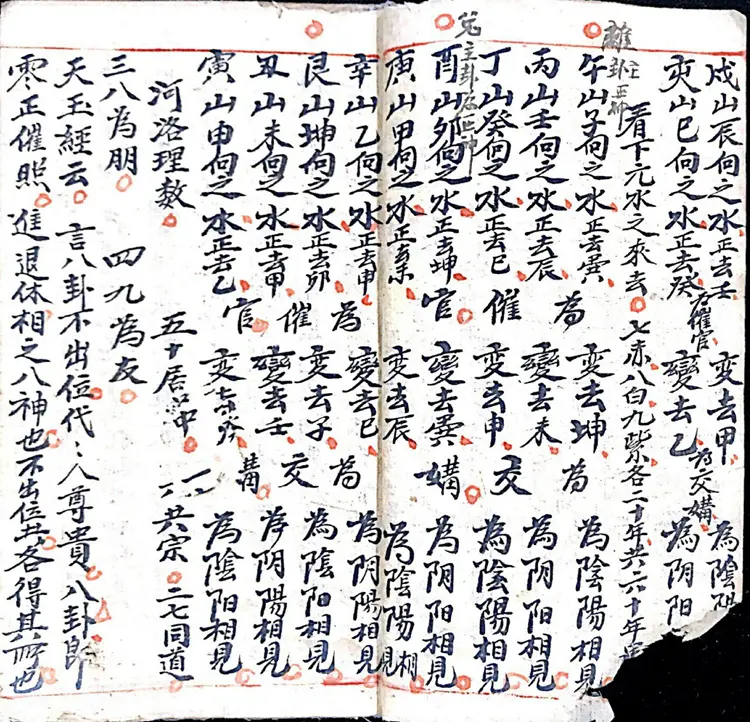 戍山辰向之水正去壬 為催官 变去甲 為交媾 為陰陽
亥山巳向之水正去癸 變去乙 為阴阳
看下元水之來去 七赤八白九紫各二十年共六十年
離主卦正神
午山子向之水正去巽 為催官 变去坤 為交媾 為陰陽相見
丙山壬向之水正去辰 變去未 為阴阳相見
丁山癸向之水正去巳 变去申 為陰陽相見
兌主卦為正神
酉山卯向之水正去坤 變去巽 為阴阳相見
庚山甲向之水正去未 变去辰 為陰陽相見
辛山乙向之水正去申 為催官 變去巳 為交媾 為阴陽相見
艮山坤向之水正去卯 变去子 為陰阳相見
丑山未向之水正去甲 變去壬 為阴陽相見
寅山申向之水正去乙 变去癸 為陰阳相見
河洛理数 五十居中 一六共宗 二七同道
三八為朋 四九為友
天玉經云 言八卦不出位代々人尊貴 八卦即
零正催照 進退休相之八神也不出位共各得其所也